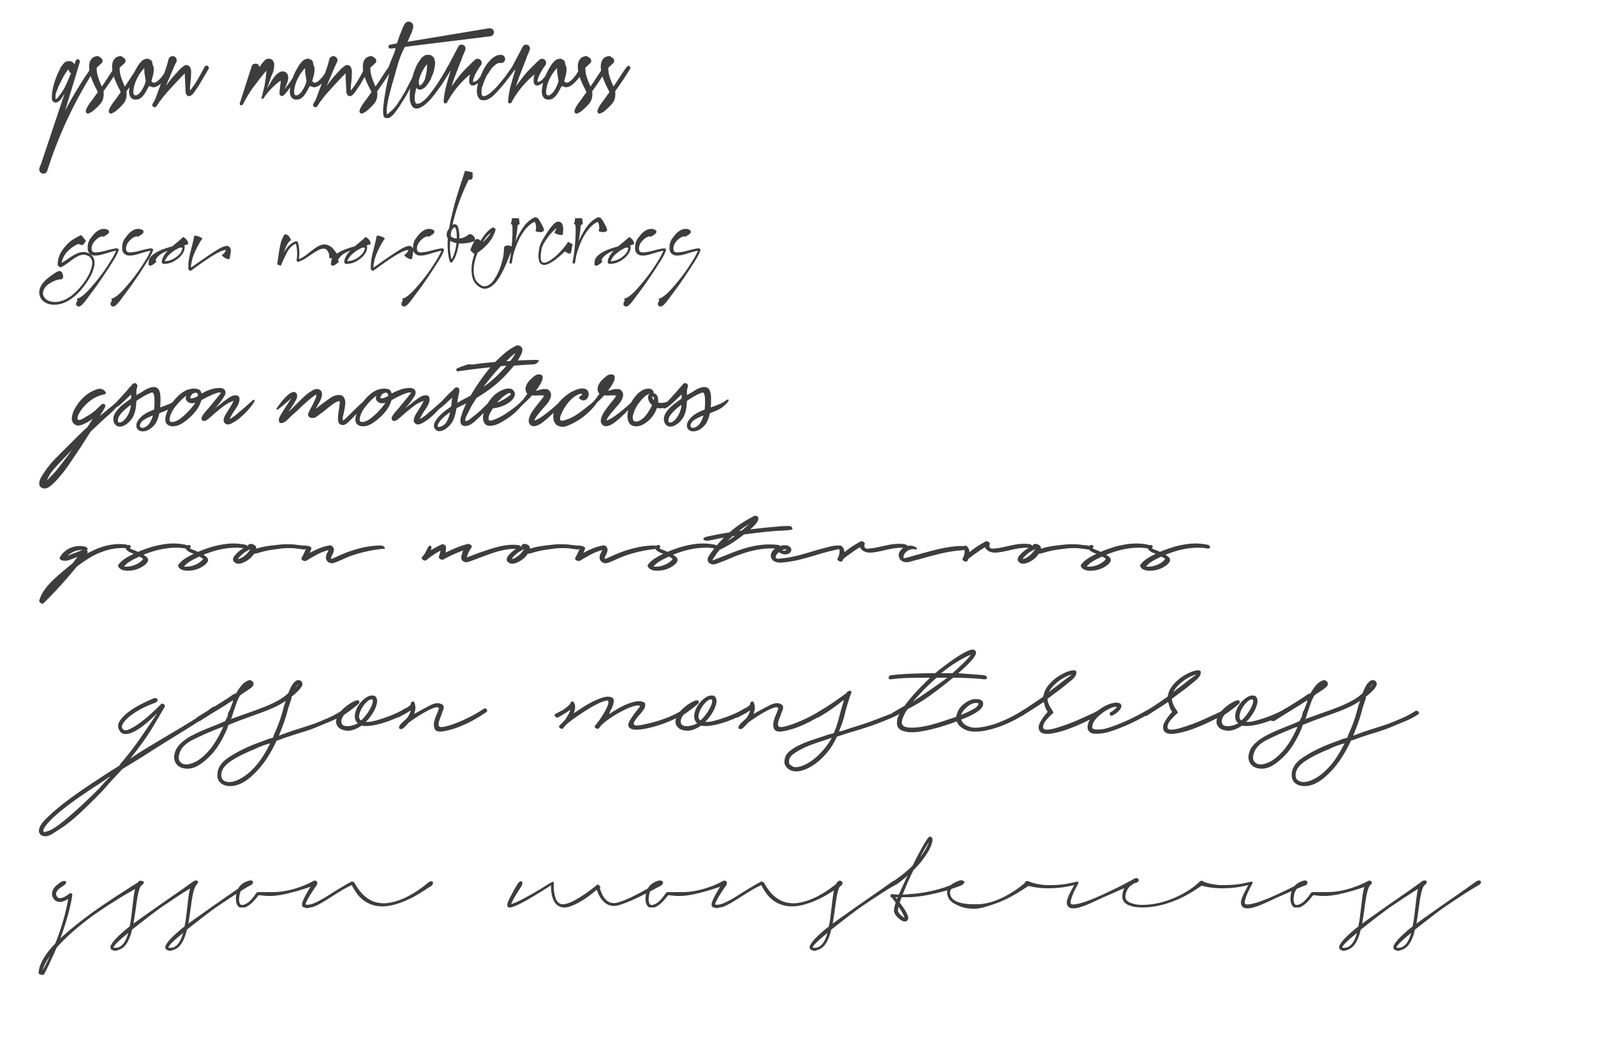 gsson monstercross
gsson monstercross
gsson monstercross
gsson monstercross
gsson monstercross
gsson monstercross